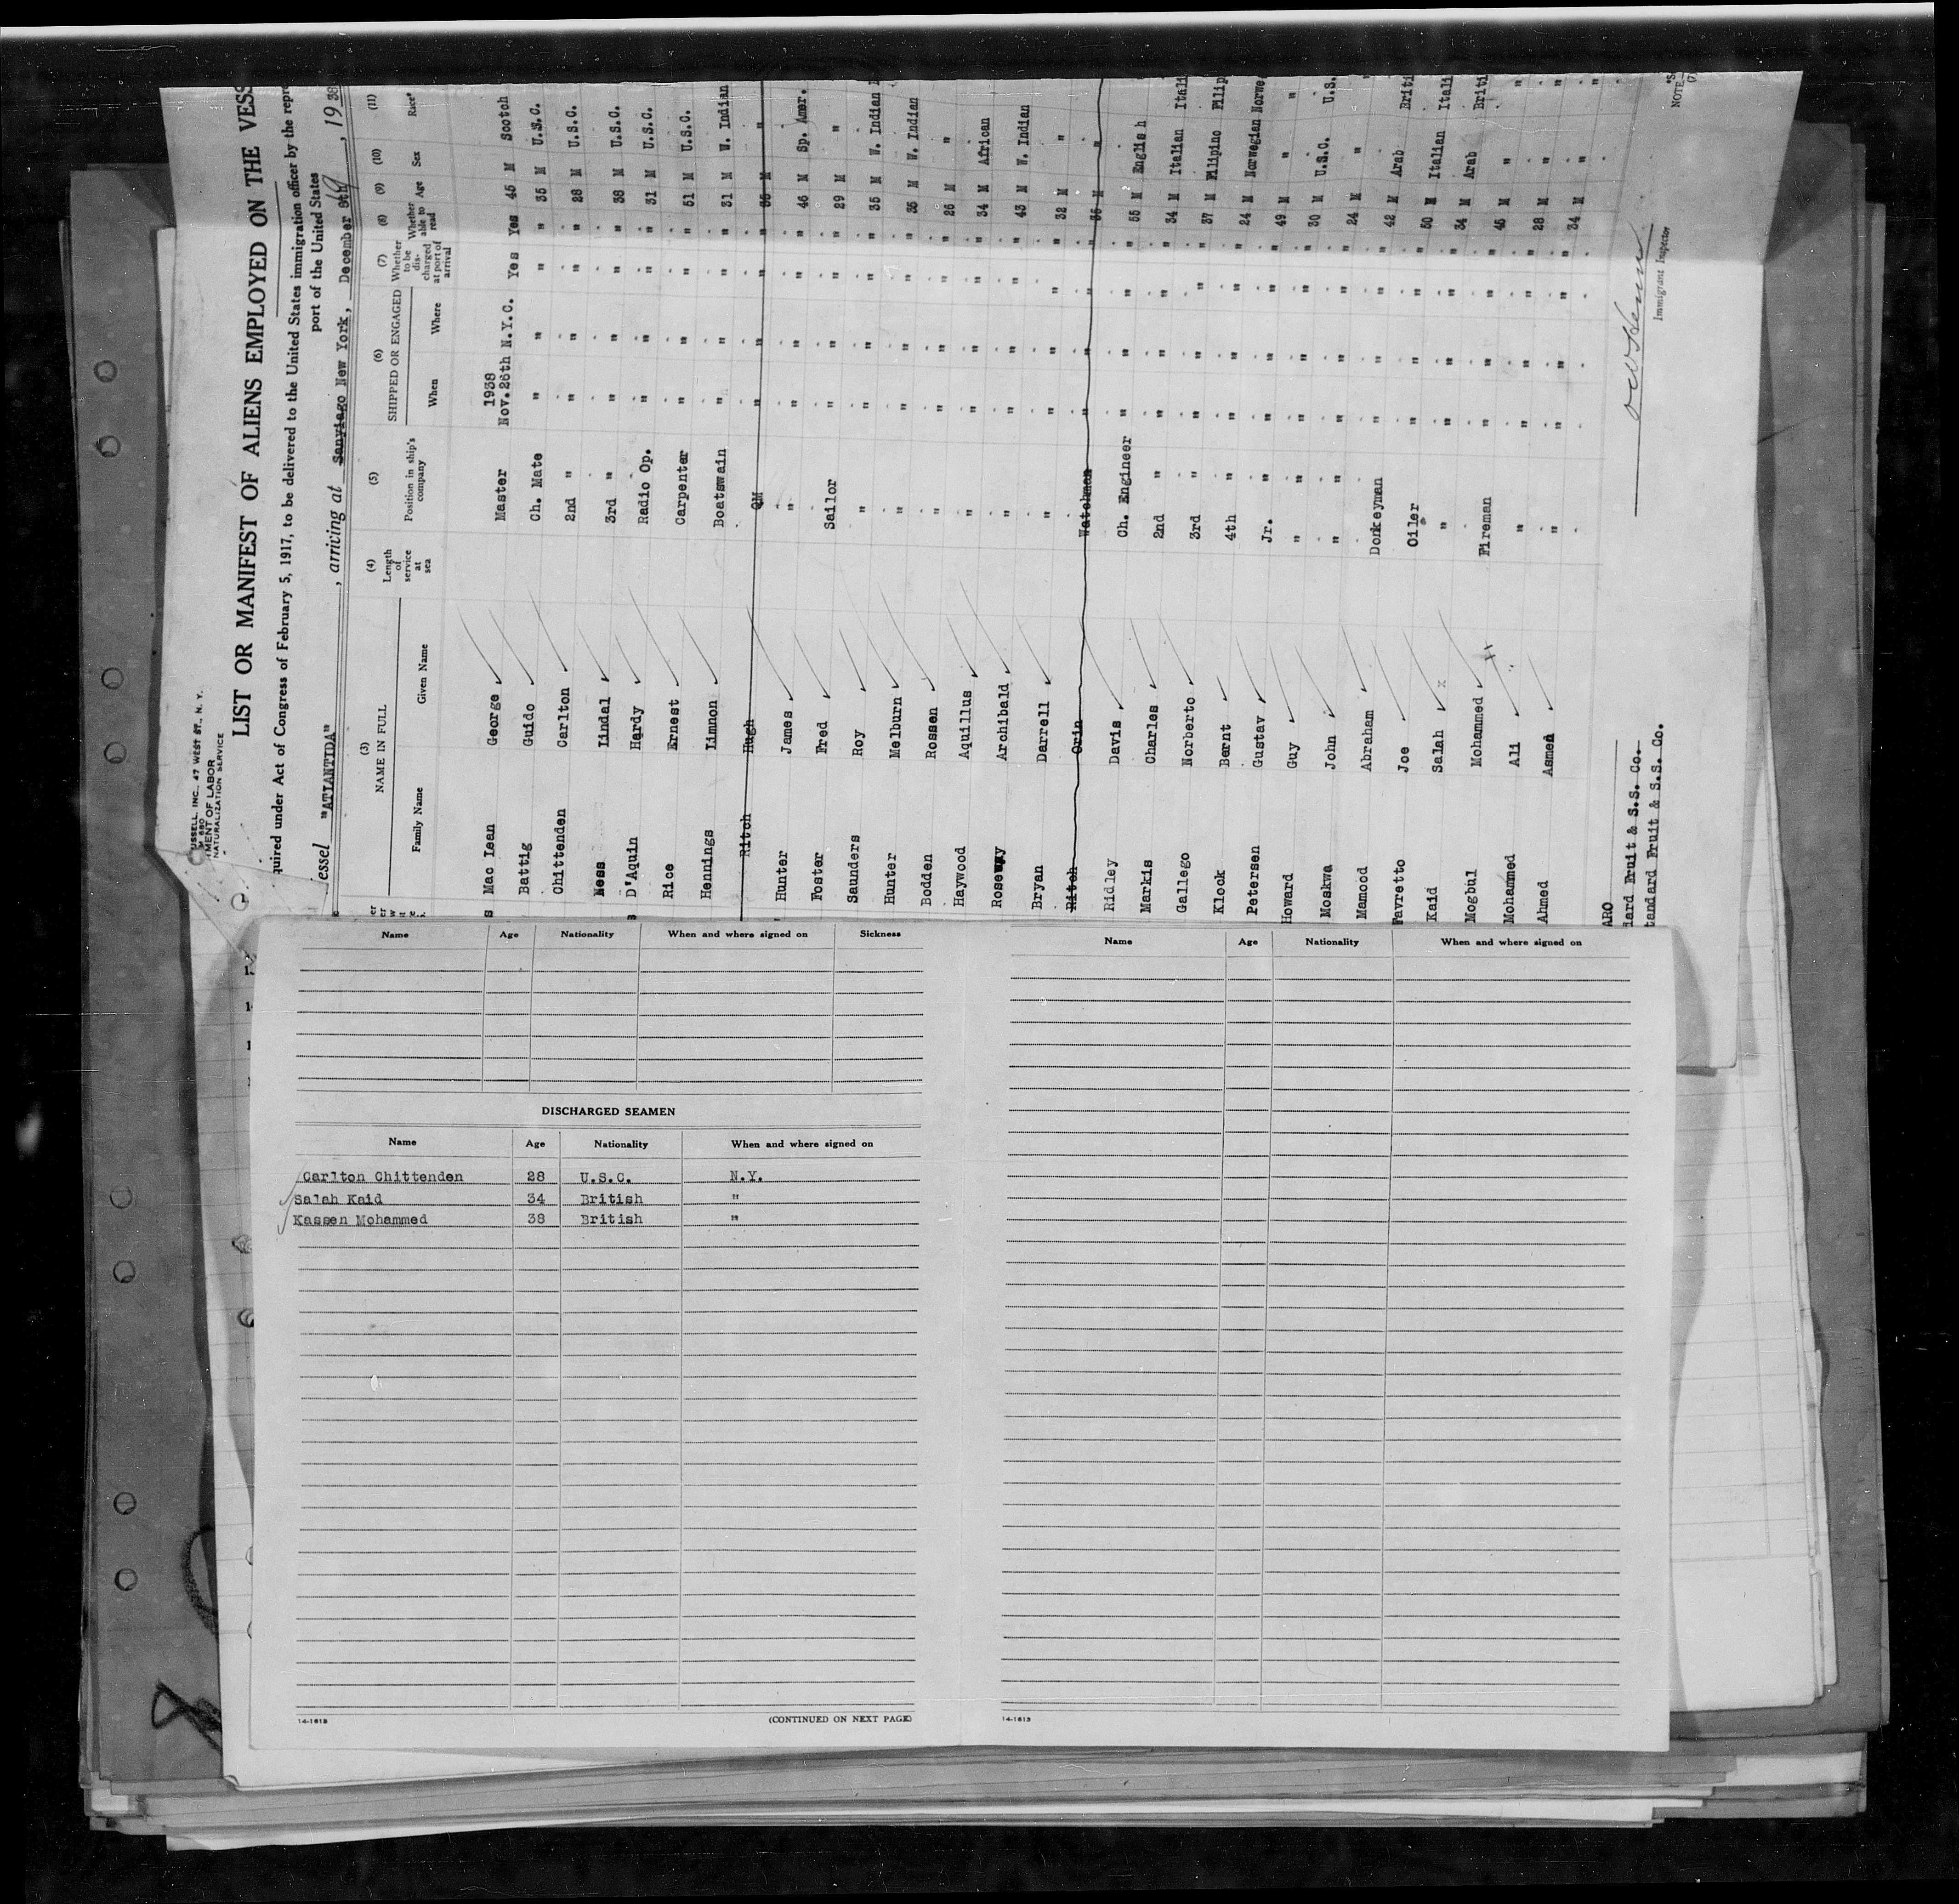 USSELL, INC., 47 WEST ST., N. Y.
680
MENT OF LABOR
NATURALIZATION SERVICE
LIST OR MANIFEST OF ALIENS EMPLOYED ON THE VESS
quired under Act of Congress of February 5, 1917, to be delivered to the United States immigration officer by the repre
port of the United States
essel "ATLANTIDA" , arriving at Sanyiago New York, December 8th 9 , 1938
(3) (4) (5) (6) (7) (8) (9) (10) (11)
NAME IN FULL Length of service at sea Position in ship's company SHIPPED OR ENGAGED Whether to be discharged at port of arrival Whether able to read Age Sex Race*
Family Name Given Name When Where
1938
Mac Lean George Master Nov.26th N.Y.C. Yes Yes 45 M Scotch
Battig Guido Ch. Mate " " " " 35 M U.S.C.
Chittenden Carlton 2nd " " " " " 28 M U.S.C.
Ness Lindal 3rd " " " " " 38 M U.S.C.
D'Aquin Hardy Radio Op. " " " " 31 M U.S.C.
Rice Ernest Carpenter " " " " 51 M U.S.C.
Hennings Linnon Boatswain " " " " 31 M W. Indian
Ritch Hugh QM " " " " 35 M "
Hunter James " " " " " 46 M Sp. Amer.
Foster Fred Sailor " " " " 29 M "
Saunders Roy " " " " " 35 M W. Indian
Hunter Melburn " " " " " 35 M W. Indian
Bodden Rossen " " " " " 26 M "
Haywood Aquillus " " " " " 34 M African
Roseway Archibald " " " " " 43 M W. Indian
Bryan Darrell " " " " " 32 M "
Ritch Orin Watchman " " " " 36 M "
Ridley Davis Ch. Engineer " " " " 55 M English
Markis Charles 2nd " " " " " 34 M Italian Itali
Gallego Norberto 3rd " " " " " 37 M Filipino Filip
Klock Bernt 4th " " " " " 24 M Norwegian Norwe
Petersen Gustav Jr. " " " " " 49 M " "
Howard Guy " " " " " " 30 M U.S.C. U.S.
Moskwa John " " " " " " 24 M " "
Mamood Abraham Donkeyman " " " " 42 M Arab Briti
Favretto Joe Oiler " " " " 50 M Italian Itali
Kaid Salah " " " " " 34 M Arab Briti
Mogbul Mohammed Fireman " " " " 45 M " "
Mohammed Ali " " " " " 28 M " "
Ahmed Asmed " " " " " 34 M " "
ARO
dard Fruit & S.S. Co.
tandard Fruit & S.S. Co.
Immigrant Inspector
NOTE
Name Age Nationality When and where signed on Sickness
DISCHARGED SEAMEN
Name Age Nationality When and where signed on
Carlton Chittenden 28 U.S.C. N.Y.
Salah Kaid 34 British "
Kassen Mohammed 38 British "
14-1613 (CONTINUED ON NEXT PAGE)
Name Age Nationality When and where signed on
14-1613